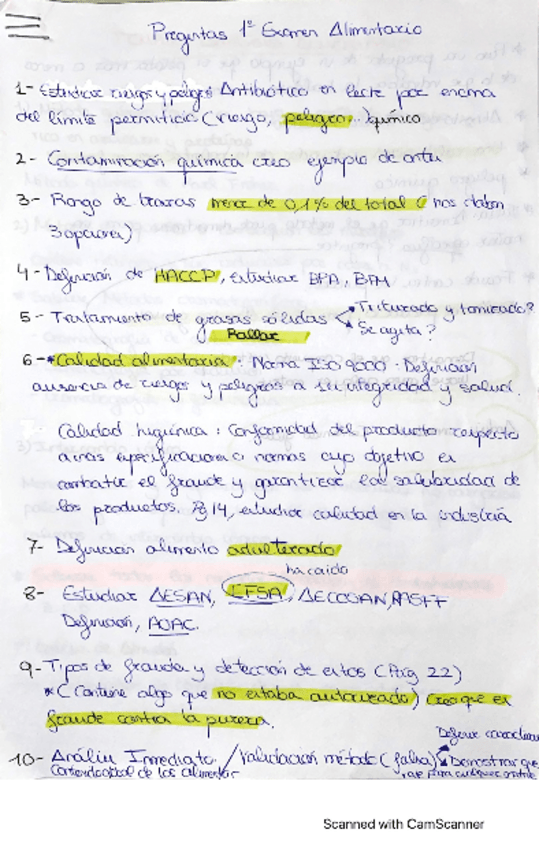 Preguntas 1º Examen Alimentario
1- Estudiar riesgos y peligros Antibiótico en leche por encima
del límite permitido (riesgo, peligro...) químico
2- Contaminación química creo ejemplo de antes
3- Rango de trazas menor de 0,1% del total (nos daban
3 opciones)
4- Definición de HACCP, estudiar BPA, BPH
5- Tratamiento de grasas sólidas
Triturado y tamizado?
Se agita?
Rallar
6- *Calidad alimentaria: Norma ISO 9000. Definición
ausencia de riesgos y peligros a su integridad y salud.
Calidad higiénica: Conformidad del producto respecto
a unas especificaciones o normas cuyo objetivo es
combatir el fraude y garantizar la salubridad de
los productos. Pg 14, estudiar calidad en la industria
7- Definición alimento adulterado
ha caído
8- Estudiar AESAN, EFSA, AECOSAN, RASFF
Definición, AOAC.
9- Tipos de fraudes y detección de estos (Pág 22)
*(Contiene algo que no estaba autorizado) Creo que es
fraude contra la pureza.
10- Análisis Inmediato / Validación método (falsa)
Definir
Demostrar que
de los alimentos